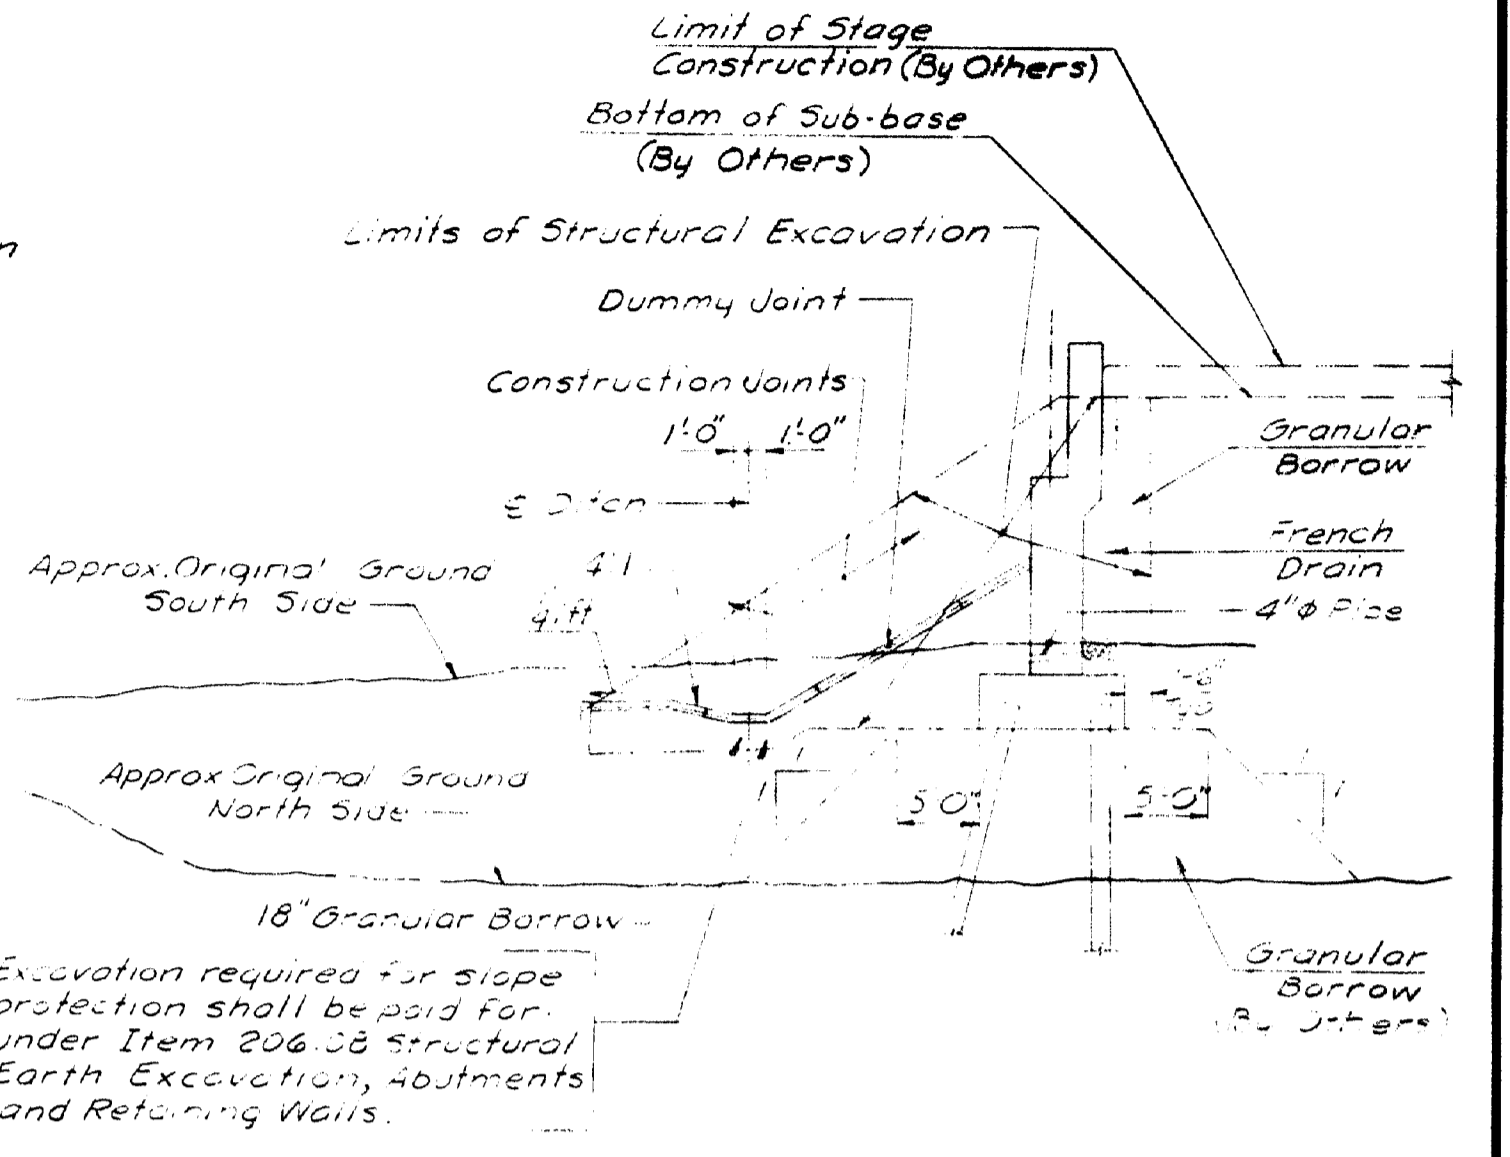 Limit of Stage
Construction (By Others)
Bottom of Sub-base
(By Others)
n
Limits of Structural Excavation
Dummy Joint
Construction Joints
1'-0" 1'-0"
Granular
Borrow
℄ Ditch
French
Drain
Approx. Original Ground
South Side
4:1
4"φ Pipe
Approx Original Ground
North Side
5'-0" 5'-0"
1 1
18" Granular Borrow
Granular
Borrow
(By Others)
Excavation required for slope
protection shall be paid for
under Item 206.08 Structural
Earth Excavation, Abutments
and Retaining Walls.